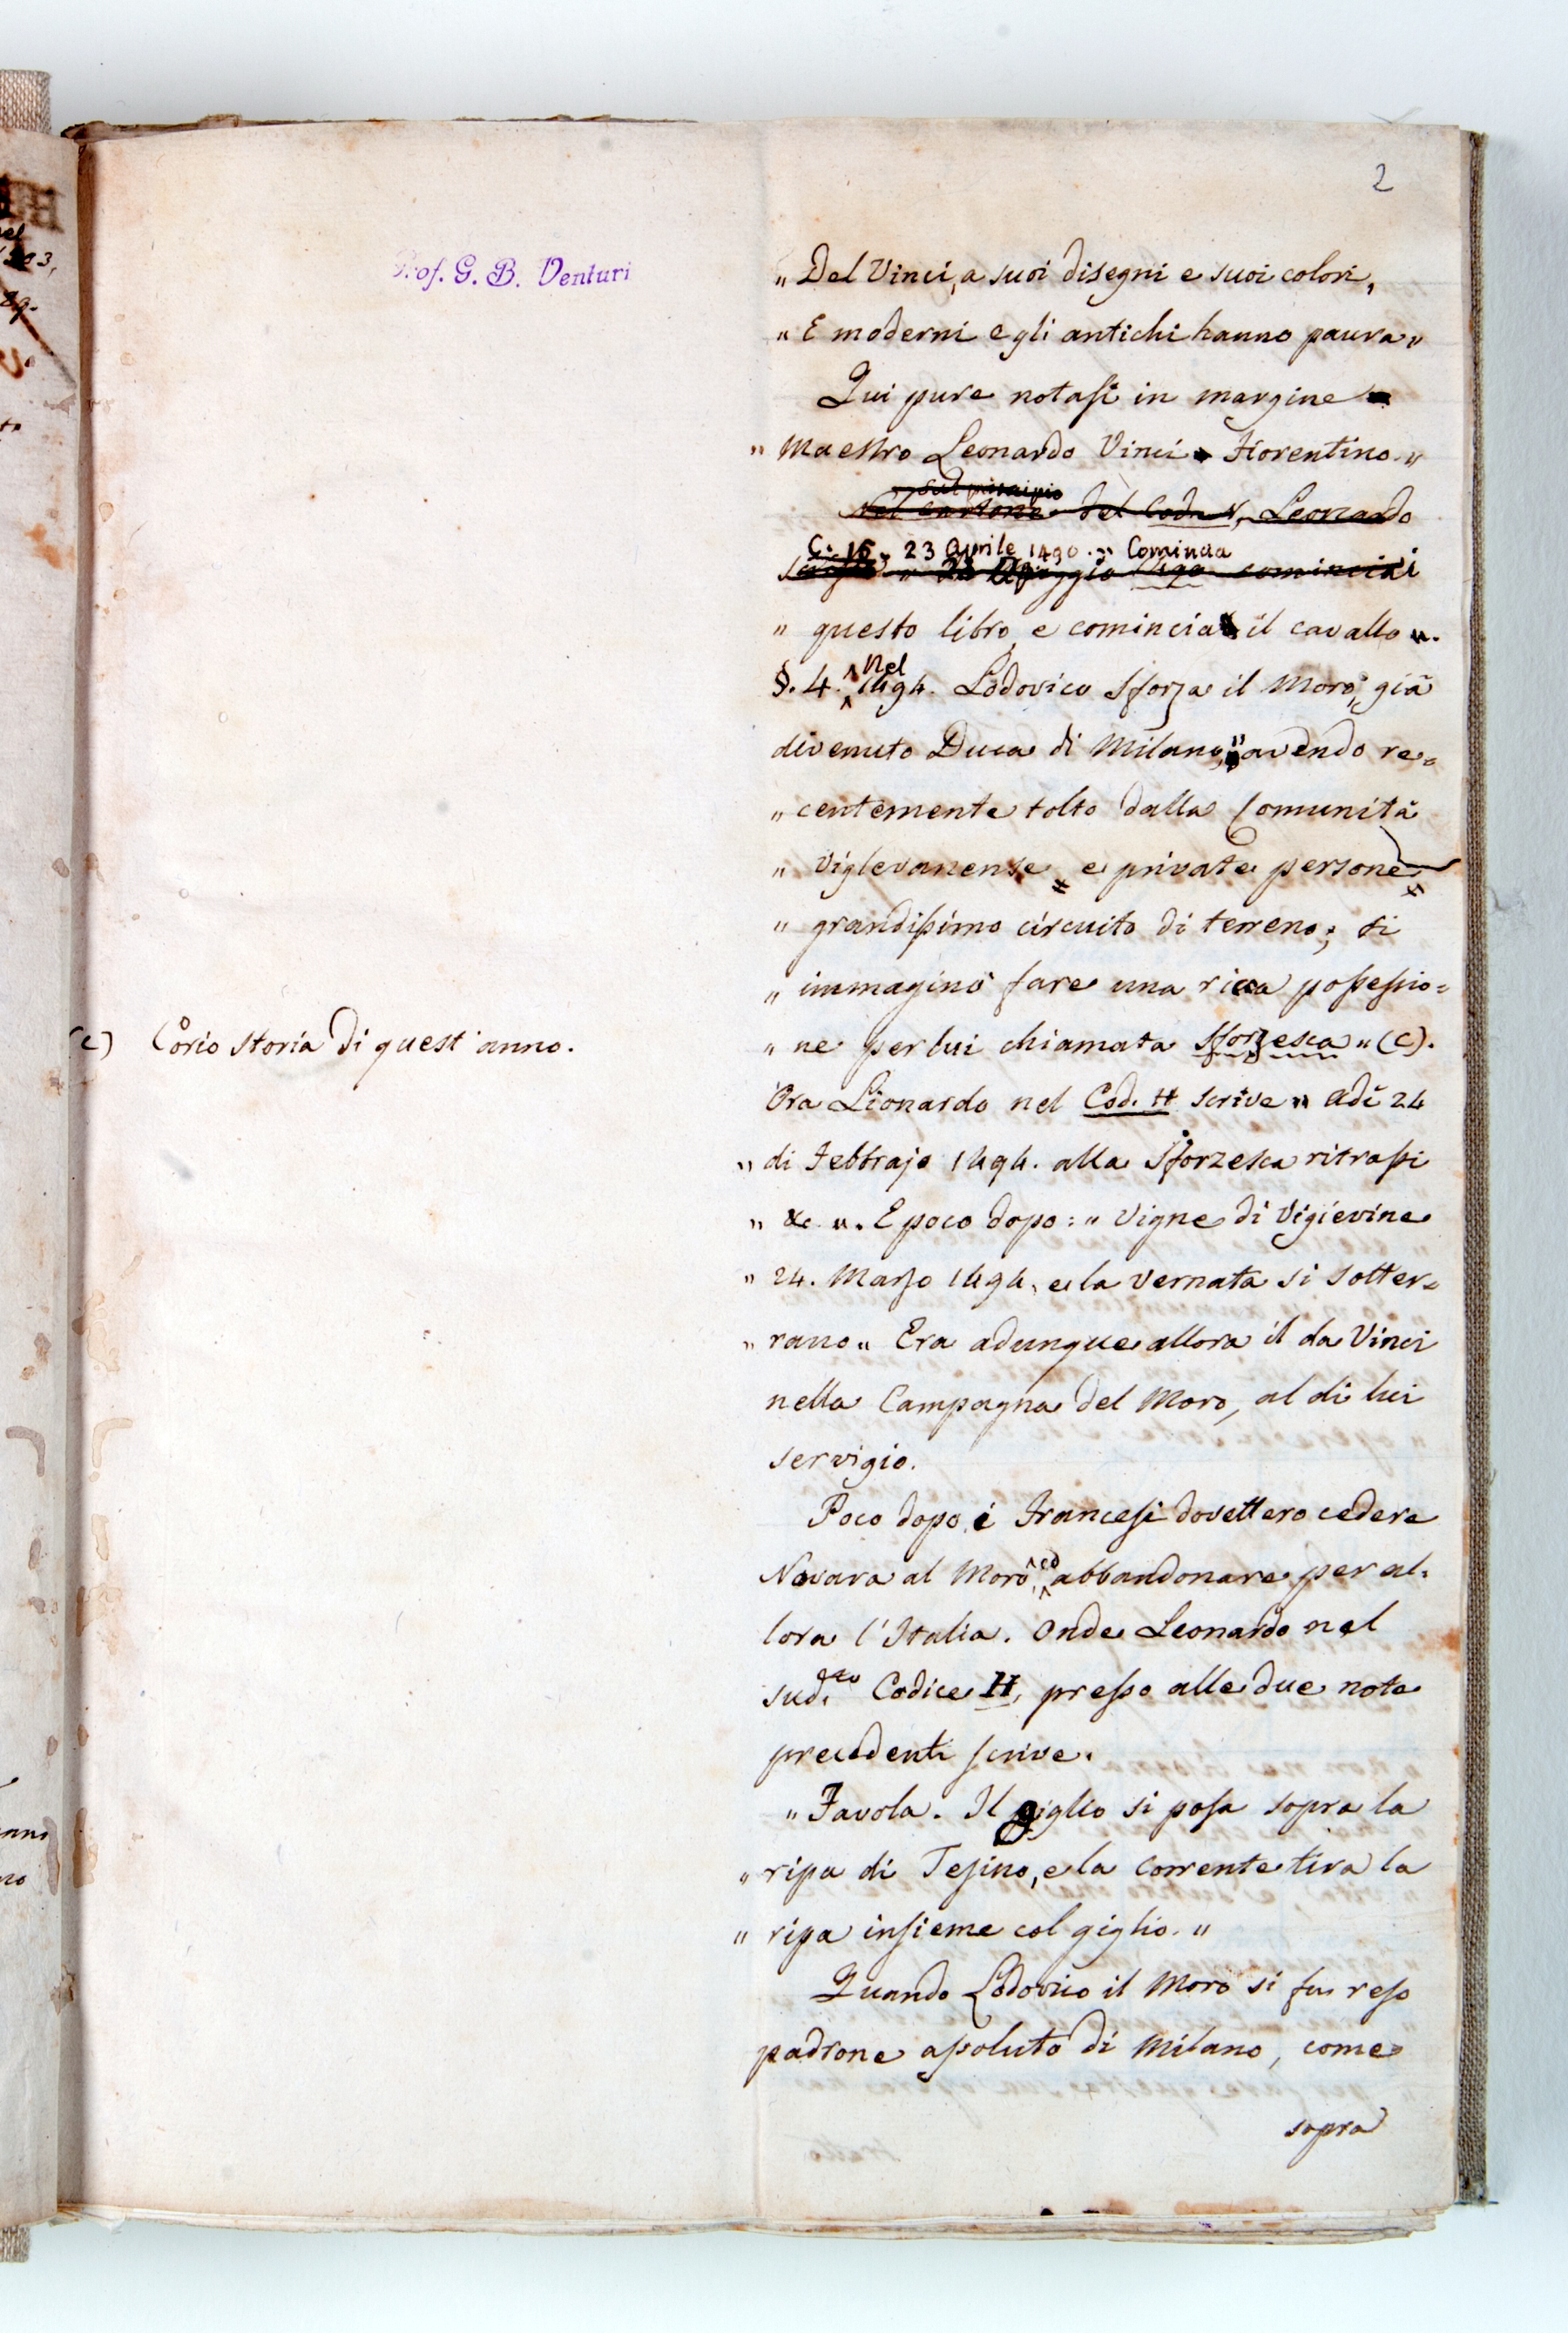 2
Prof. G. B. Venturi
„ Del Vinci, a suoi disegni e suoi colori,
„ E moderni e gli antichi hanno paura „
Qui pure notasi in margine
„ Maestro Leonardo Vinci Fiorentino. „
sul principio
Nel cartone del Cod. Leonardo
C. 15 „ 23 Aprile 1490. „ Cominciai
cominciai
„ questo libro, e cominciai il cavallo „.
§. 4. Nel 1494. Lodovico Sforza il Moro, già
divenuto Duca di Milano, „ avendo re=
„ centemente tolto dalla Comunità
„ Viglevanense e private persone
„ grandissimo circuito di terreno; si
„ immaginò fare una ricca possessio=
„ ne per lui chiamata Sforzesca „ (c).
(c) Corio storia di quest'anno.
Ora Lionardo nel Cod. H scrive „ adì 24
„ di Febbrajo 1494. alla Sforzesca ritrassi
„ &c. „. E poco dopo: „ Vigne di Vigievine
„ 24. Marzo 1494, e la vernata si sotter=
„ rano „ Era adunque allora il da Vinci
nella Campagna del Moro, al di lui
servigio.
Poco dopo i Francesi dovettero cedere
Novara al Moro, ed abbandonare per al=
lora l'Italia. Onde Leonardo nel
sud.etto Codice H, presso alle due note
precedenti scrive.
„ Favola. Il giglio si posa sopra la
„ ripa di Tesino, e la corrente tira la
„ ripa insieme col giglio. „
Quando Lodovico il Moro si fu reso
padrone assoluto di Milano, come
sopra